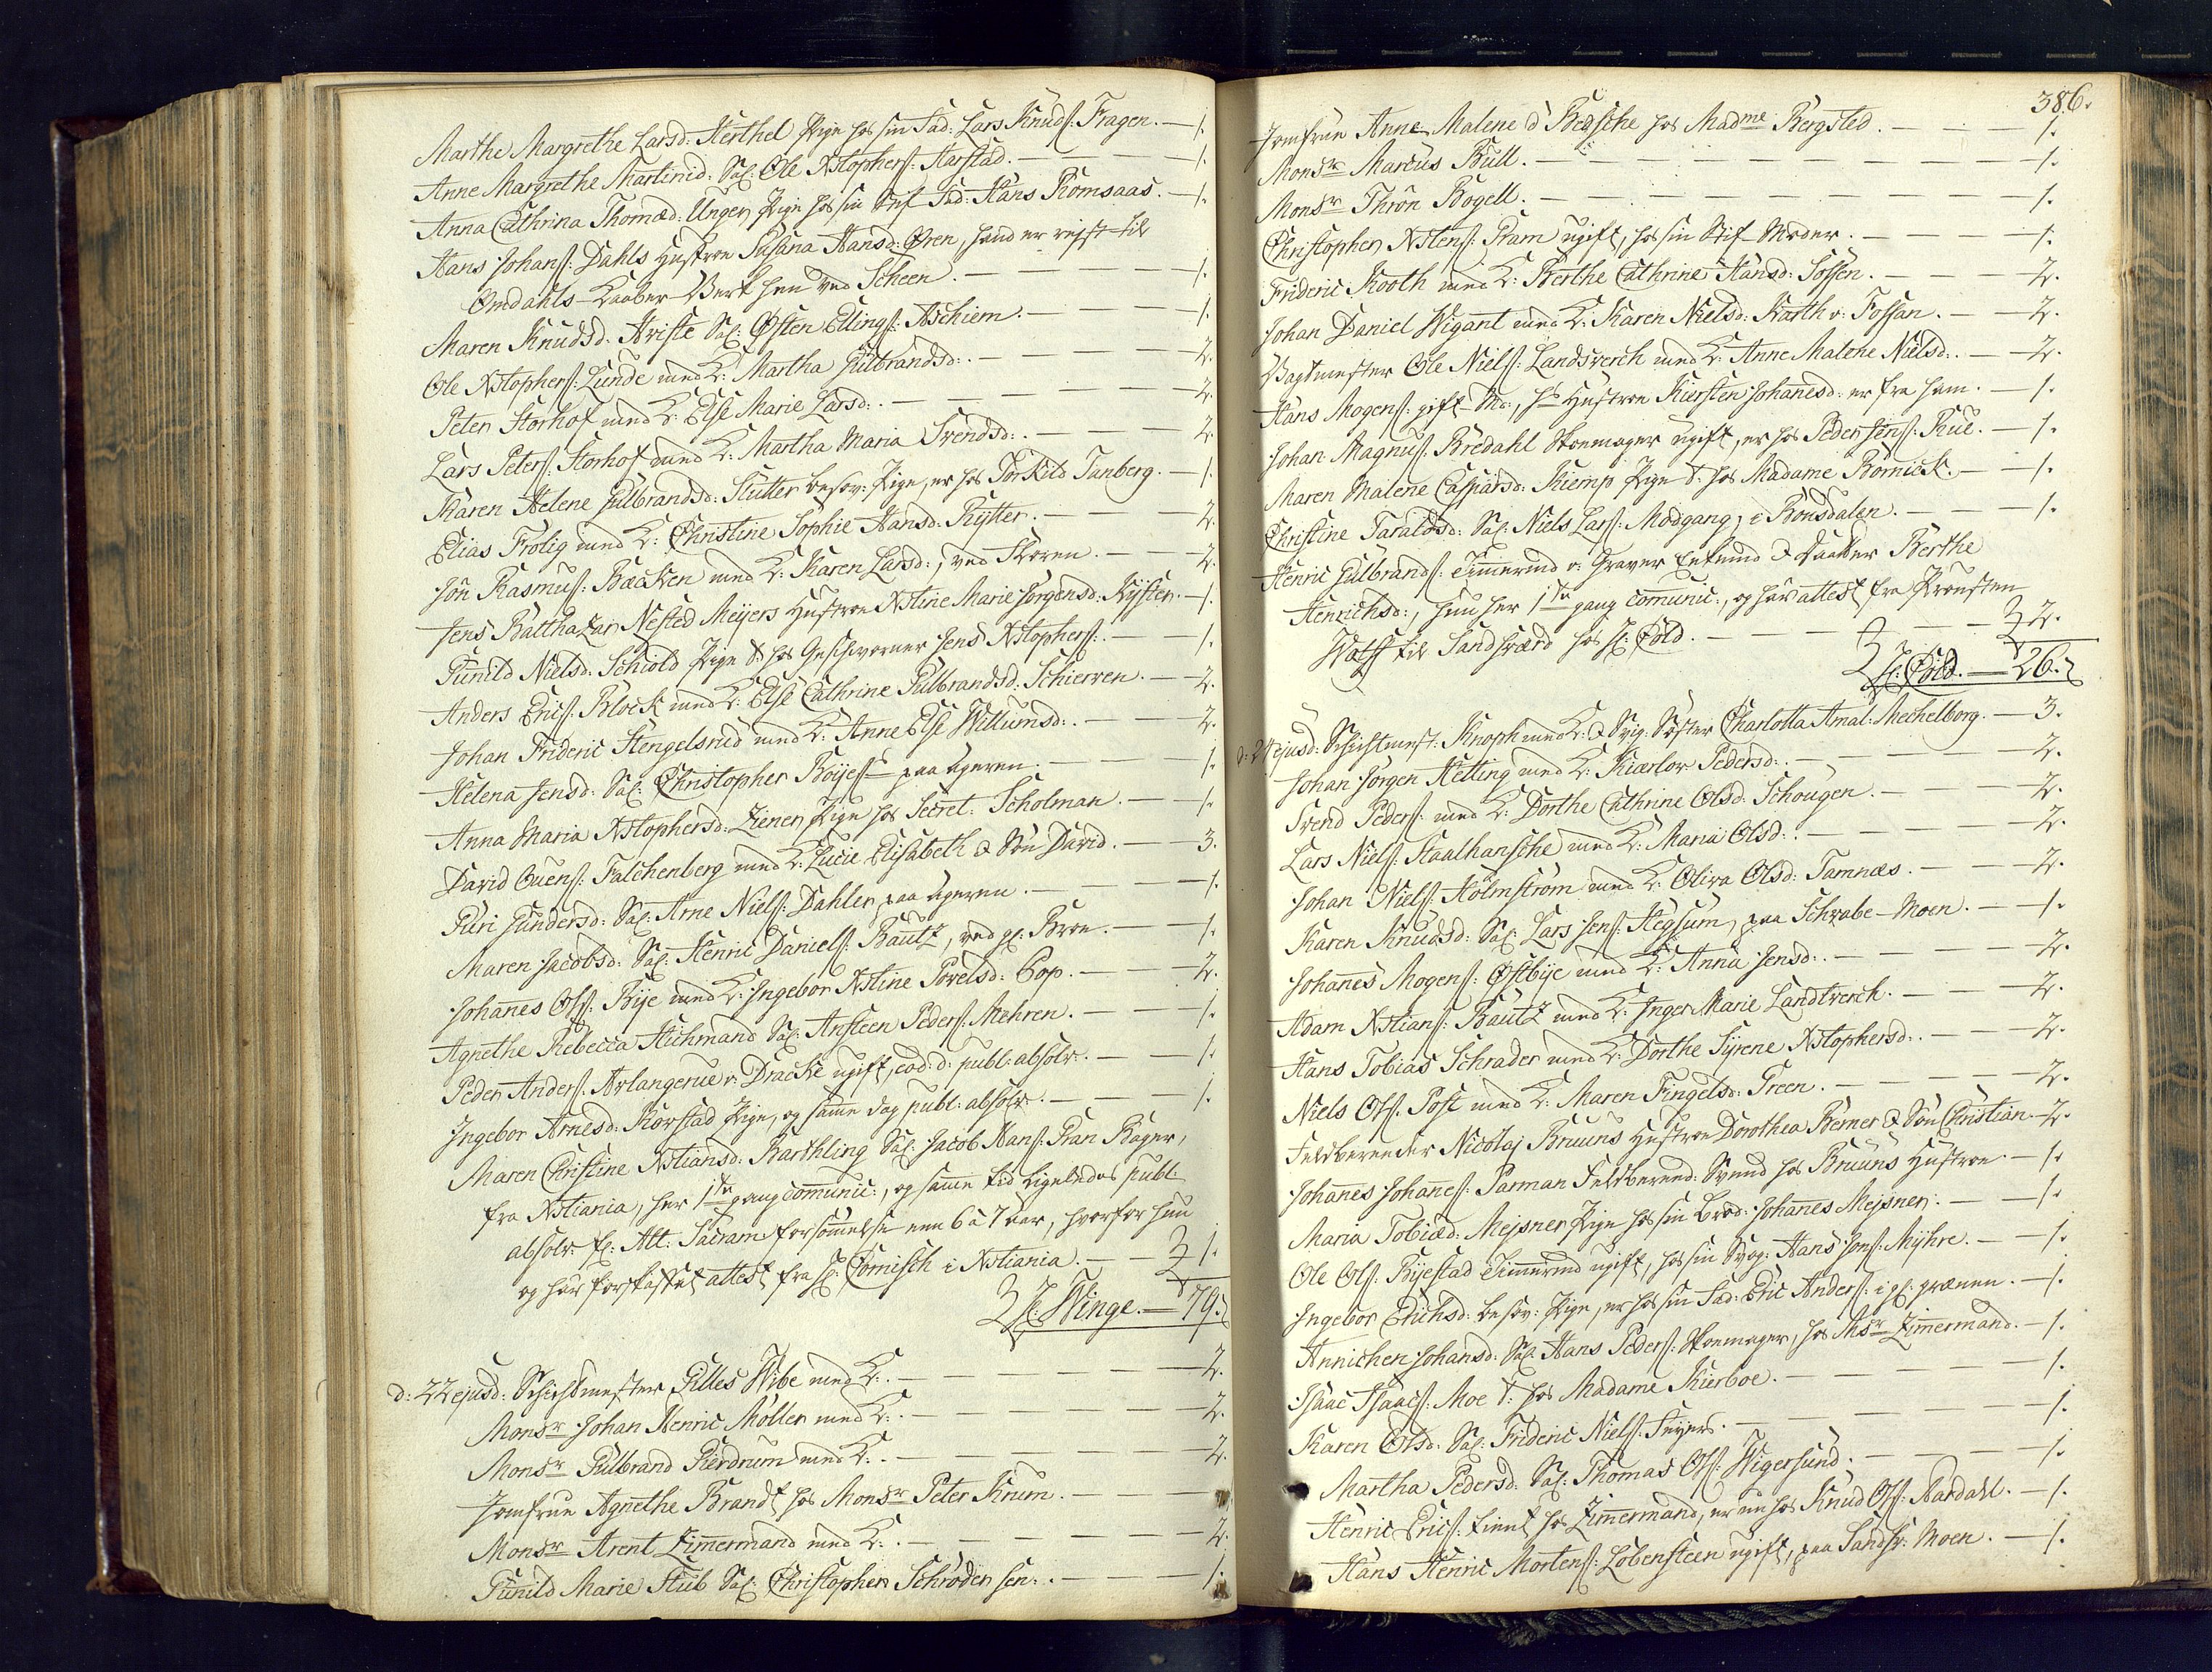 Marthe Margrethe Larsd: Herthel Pige hos sin Fad: Lars Knuds: Fragen. — 1.
Anne Margrethe Martinid: Sal: Ole Xstophers: Harstad. — 1.
Anna Cathrina Thomæd: Unger, Pige hos sin Stif-Fad: Hans Romsaas. — 1.
Hans Johans: Dahls Hustroe Susana Hansd: Øren, hand er rejst til
Omdahls-Kaaber-Verk hen ved Scheen. — 1.
Maren Knudsd: Hviste Sal: Østen Ellings: Aschiem. — 1.
Ole Xstophers: Lunde med K: Martha Gulbrandsd:. — 2.
Peter Storhof med K: Else Marie Larsd:. — 2.
Lars Peters: Storhof med K: Martha Maria Svendsd:. — 2.
Karen Helene Gulbrandsd: Stutter besov: Pige, er hos Torkild Tanberg. — 1.
Elias Frølig med K: Christine Sophie Hansd: Rytter. — 2.
Jon Rasmus: Bacchen med K: Karen Larsd:, ved Skoren. — 2.
Jens Balthazar Nested Meijers Hustroe Xstine Marie Jørgensd: Kyster. — 1.
Gunild Nielsd: Schiold Pige t: hos Geschworner Jens Xstophers:. — 1.
Anders Erics: Block med K: Else Cathrine Gulbrandsd: Schierven. — 2.
Johan Frideric Stengelsrud med K: Anne Else Willumsd:. — 2.
Helena Jensd: Sal: Christopher Boijes: paa Ageren. — 1.
Anna Maria Xstophersd: Ziener Pige hos Secret: Scholman. — 1.
David Ouens: Falchenberg med K: Lucie Elisabeth & Søn David. — 3.
Guri Gundersd: Sal: Arne Niels: Dahler paa Ageren. — 1.
Maren Jacobsd: Sal: Henric Daniels: Bautz, ved gl: Broe. — 1.
Johannes Ols: Bije med K: Ingebor Xstine Povelsd: Bop. — 2.
Agnethe Rebecca Hichmand Sal: Ansteen Peders: Mehren. — 1.
Peder Anders: Avlangerue v: Dracke ugift, eod: d: publ: absolv. — 1.
Ingebor Arnesd: Korstad Pige, og samme dag publ: absolv. — 1.
Maren Christine Xstiansd: Barthling Sal: Jacob Hans: Pran Bager,
fra Xstiania, her 1ste gang comunic:, og samme tid ligeledes publ:
absolv: f: Alt: Sacram: forsømmelse enn 6 à 7 aar, hvorfor hun
og har forskaffet attest fra H: Cornisch i Xstiania. — 1.
H: Winge. — 79.
d: 22 ejusd: Schichtmester Gilles Wibe med K:. — 2.
Monsr Johan Henric Møller med K:. — 2.
Monsr Gulbrand Gierdrum med K:. — 2.
Jomfrue Agnethe Brandt hos Monsr Peter Krum. —
Monsr Arent Zimermand med K:. — 2.
Gunild Marie Stub Sal: Christopher Schrøder sen:. — 1.
386.
Jomfrue Anne Malene d' Besche hos Madme Bergsted. — 1.
Monsr Marcus Bull. — 1.
Monsr Thron Bogell. — 1.
Christopher Xstens: Pram ugift, hos sin Stif-Moder. — 1.
Frideric Rooth med K: Berthe Cathrine Hansd: Solsen. — 2.
Johan Daniel Wigant med K: Karen Nielsd: Korth v: Fossan. — 2.
Vagtmester Ole Niels: Landsverch med K: Anne Malene Nielsd:. — 2.
Hans Mogens: gift Md:, hs Hustroe Kiersten Johanesd: er fra ham. — 1.
Johan Magnus: Bredahl Skoemager ugift, er hos Peder Jens: Rue. — 1.
Maren Malene Caspersd: Kiemp Pige t: hos Madame Børnick. — 1.
Christine Taraldsd: Sal: Niels Lars: Modgang, i Bonsdalen. — 1.
Henric Gulbrands: Timmermd v: Graver Enkemd & Daatter Berthe
Henrichsd:, hun her 1ste gang comunic:, og har attest fra Provsten
Wolff til Sandsværd hos H: Cold. — 2.
H: Cold. — 26.
d: 24 ejusd: Schichtmest: Knoph med K: & Svig: Søster Charlotta Amal: Mechelborg. — 3.
Johan Jørgen Helling med K: Kiærlov Pedersd:. — 2.
Svend Peders: med K: Dorthe Cathrine Olsd: Schougen. — 2.
Lars Niels: Staalhansche med K: Maria Olsd:. — 2.
Johan Niels: Holmstrøm med K: Oliva Olsd: Tamnæs. — 2.
Karen Knudsd: Sal: Lars Jens: Hegsum, paa Schwabe-Moen. — 1.
Johannes Mogens: Østbije med K: Anna Jensd:. — 2.
Adam Xstians: Bautz med K: Inger Marie Landtverch. — 2.
Hans Tobias Schrader med K: Dorthe Syrene Xstophersd:. — 2.
Niels Ols: Post med K: Maren Fingelsd: Treen. — 2.
Feldbereeder Nicolaj Bruuns Hustroe Dorothea Berner & Søn Christian. — 2.
Johannes Johannes: Parman Feldbereed: Svend hos Bruuns Hustroe. — 1.
Maria Tobiæd: Mejsner Pige hos sin Brod: Johannes Mejsner. — 1.
Ole Ols: Bijestad Timmermd ugift, hos sin Svog: Hans Jons: Myhre. — 1.
Ingebor Erichsd: besov: Pige, er hos sin Fad: Eric Anders: i gl: grænen. — 1.
Annichen Johansd: Sal: Hans Peders: Skoemager, hos Msr Zimermand. — 1.
Isaac Isaacs: Moe t: hos Madame Kierboe. — 1.
Karen Olsd: Sal: Frideric Niels: Seyer. — 1.
Martha Pedersd: Sal: Thomas Ols: Wigersund. — 1.
Henric Erics: tient hos Zimmermand, er nu hos Knud Ols: Aardahl. — 1.
Hans Henric Mortens: Løbensteen ugift, paa Sandsv: Moen. — 1.